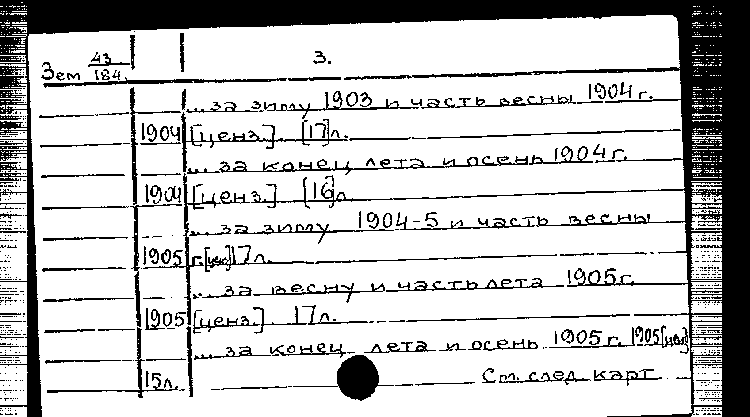 Зем 43/184. 3.
... за зиму 1903 и часть весны 1904 г.
1904 [ценз.]. [17]л.
... за конец лета и осень 1904 г.
1904 [ценз.] [16]л.
... за зиму 1904-5 и часть весны
1905 г. [цен] 17 л.
... за весну и часть лета 1905 г.
1905 [ценз.] 17 л.
... за конец лета и осень 1905 г. 1905 [цен]
15 л. См. след. карт